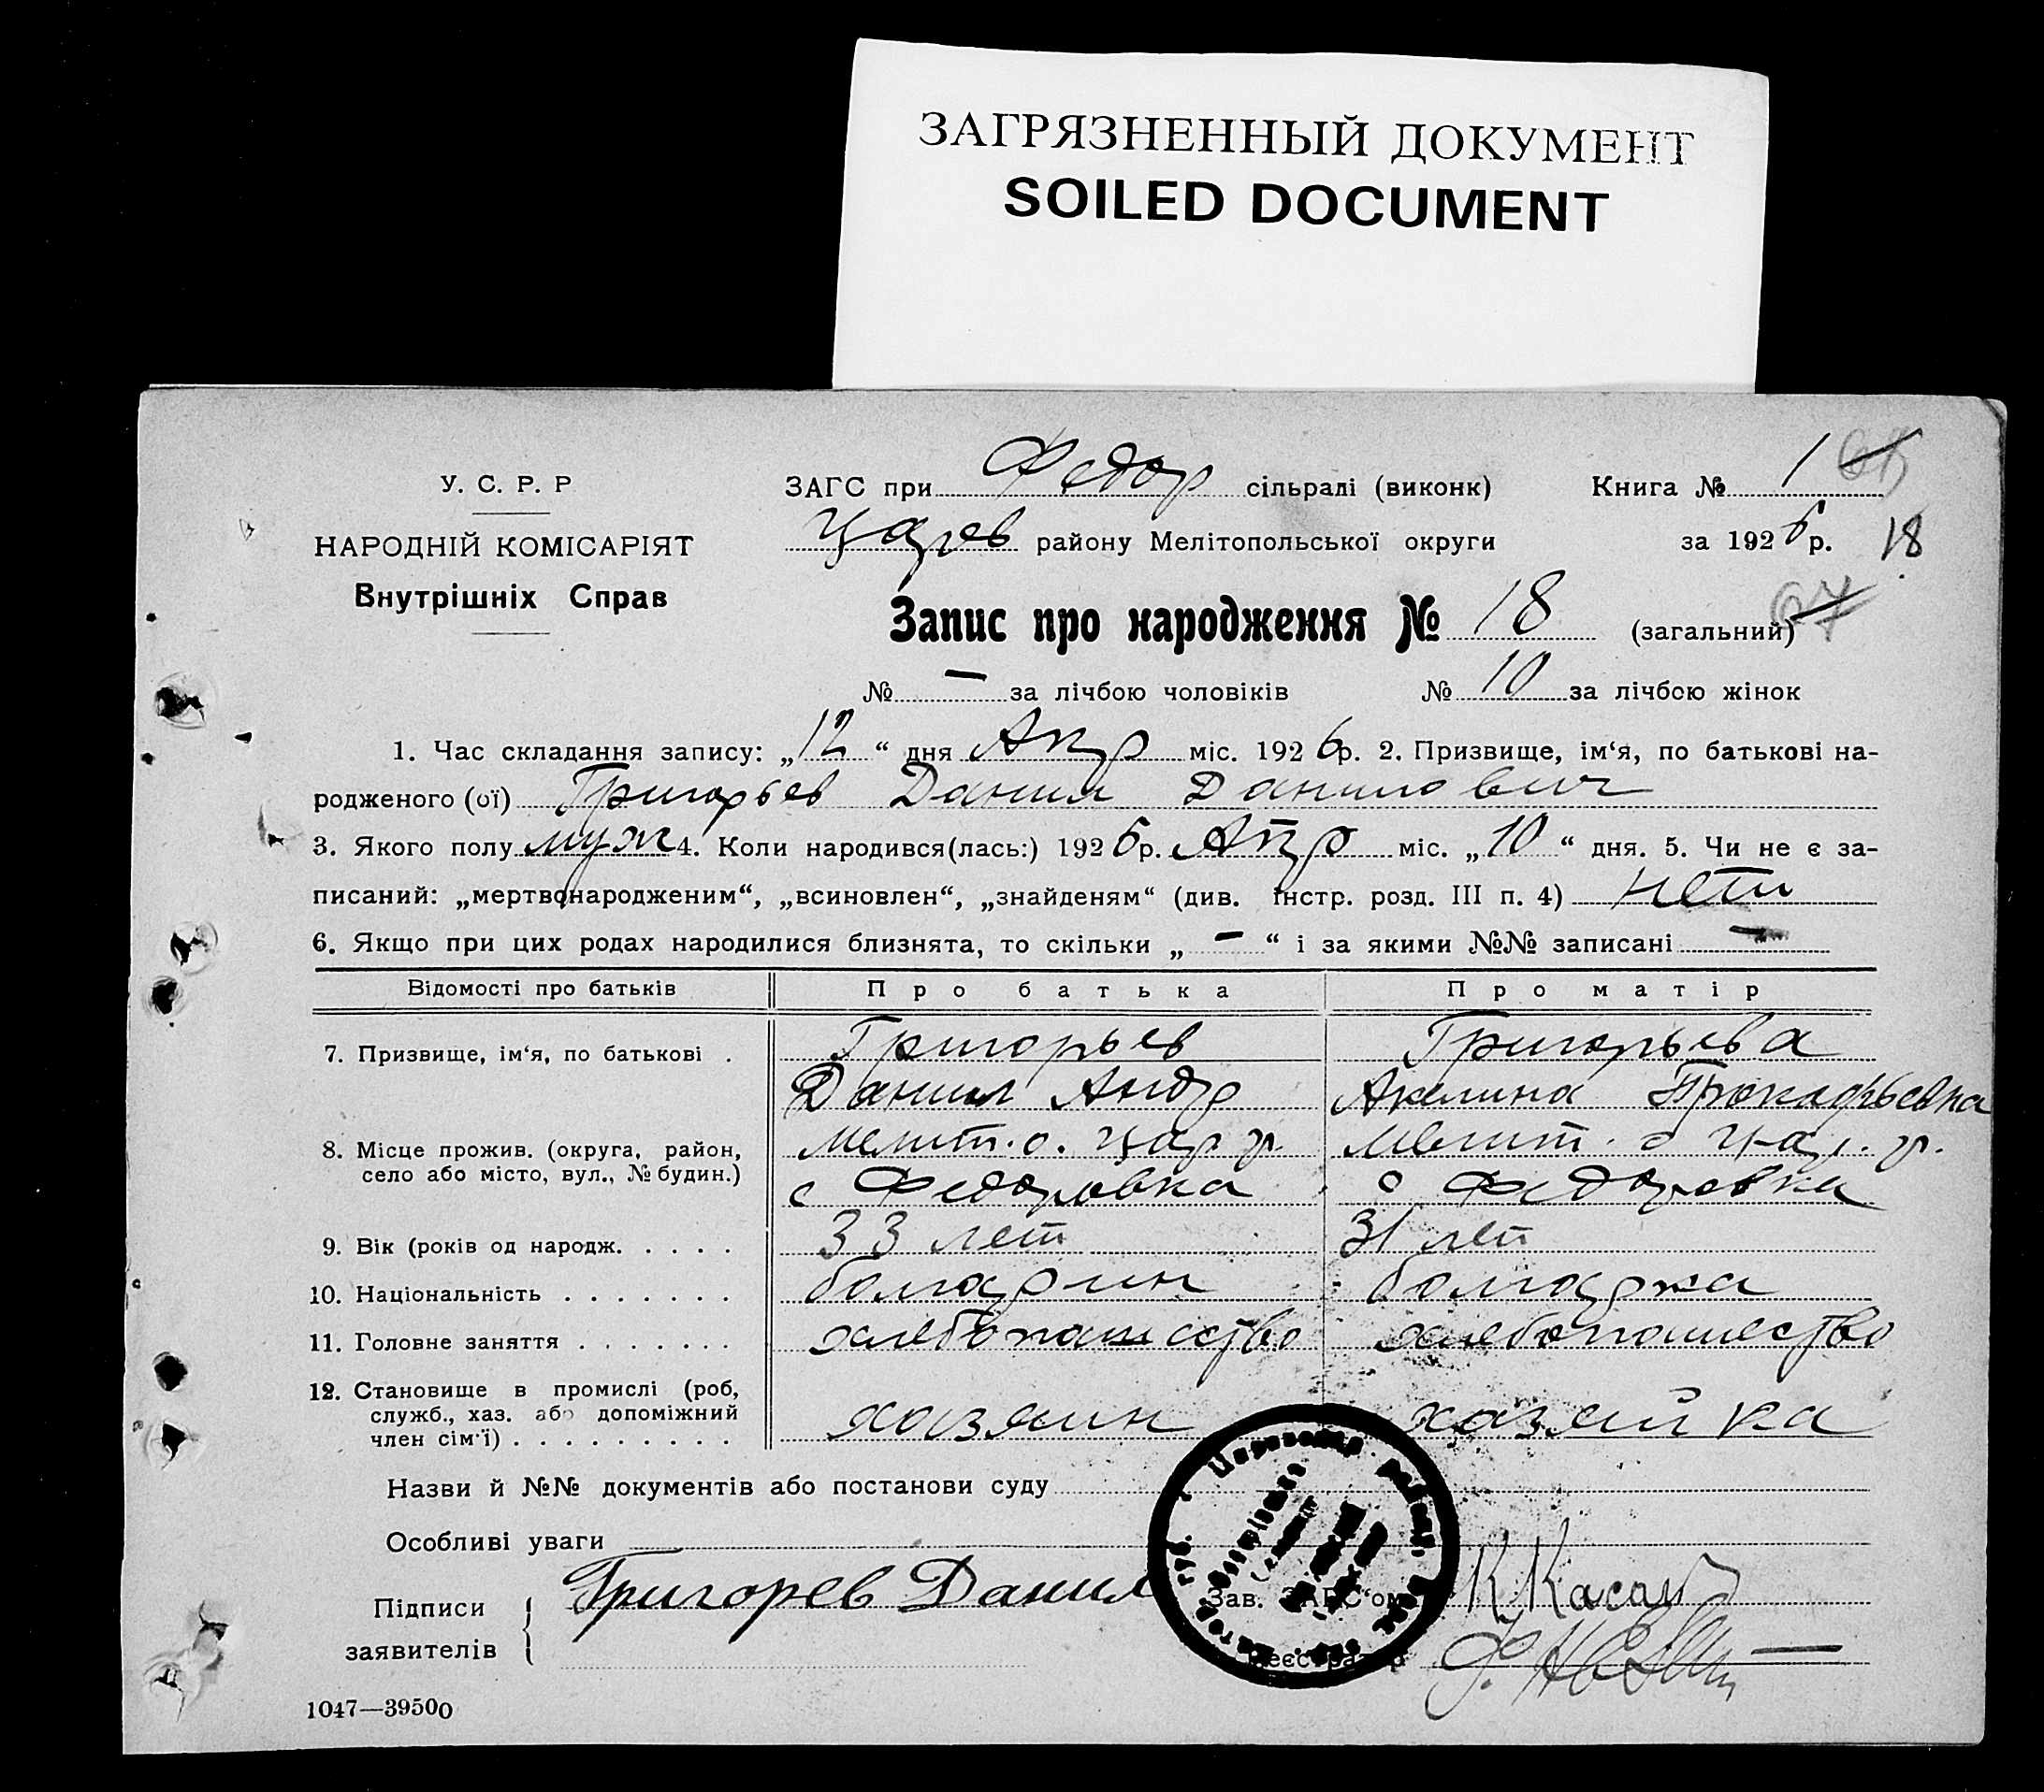 ЗАГРЯЗНЕННЫЙ ДОКУМЕНТ
SOILED DOCUMENT
У. С. Р. Р
НАРОДНІЙ КОМІСАРІЯТ
Внутрішніх Справ
ЗАГС при Федор сільраді (виконк) Книга № 1
Царев району Мелітопольської округи за 1926 р. 18
Запис про народження № 18 (загальний) 67
№ — за лічбою чоловіків № 10 за лічбою жінок
1. Час складання запису: „12“ дня Апр міс. 1926 р. 2. Призвище, ім‘я, по батькові на-
родженого (ої) Григорьев Данил Данилович
3. Якого полу муж 4. Коли народився(лась:) 1926 р. Апр міс. „10“ дня. 5. Чи не є за-
писаний: „мертвонародженим“, „всиновлен“, „знайденям“ (див. інстр. розд. III п. 4) нети
6. Якщо при цих родах народилися близнята, то скільки „ — “ і за якими №№ записані —
Відомості про батьків Про батька Про матір
7. Призвище, ім‘я, по батькові . Григорьев Григорьева
Данил Андр Акелина Прокофьевна
8. Місце прожив. (округа, район, село або місто, вул., № будин.) Мелит. о. Цар р. Мелит. о Цар. р.
с Федоровка с Федоровка
9. Вік (років од народж. . . . . 33 лет 31 лет
10. Національність . . . . . . . болгарин болгарка
11. Головне заняття . . . . . . . хлебопашество хлебопашество
12. Становище в промислі (роб, служб., хаз. або допоміжний член сім‘ї) . . . . . . . . . хозяин хазяйка
Назви й №№ документів або постанови суду
Особливі уваги
Підписи заявителів Григорев Данил
Зав. ЗАГС‘ом К Касай
Реєстратор
1047—39500